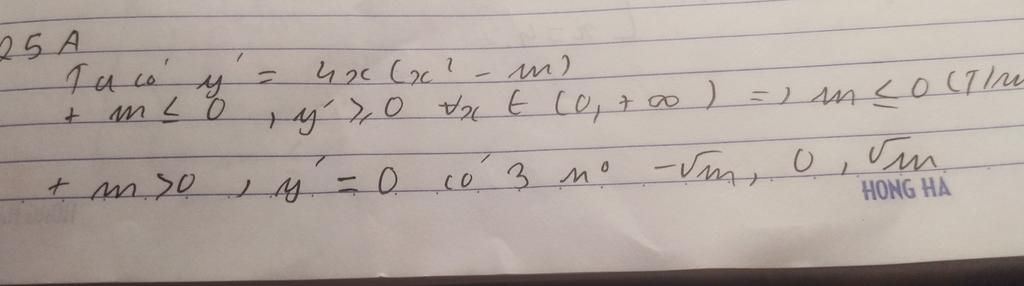 25 A
Ta có y' = 4x(x² - m)
+ m ≤ 0 , y' ≥ 0 ∀x ∈ (0, +∞) => m ≤ 0 (T/m
+ m > 0 , y' = 0 có 3 n⁰ -√m, 0, √m
HONG HA